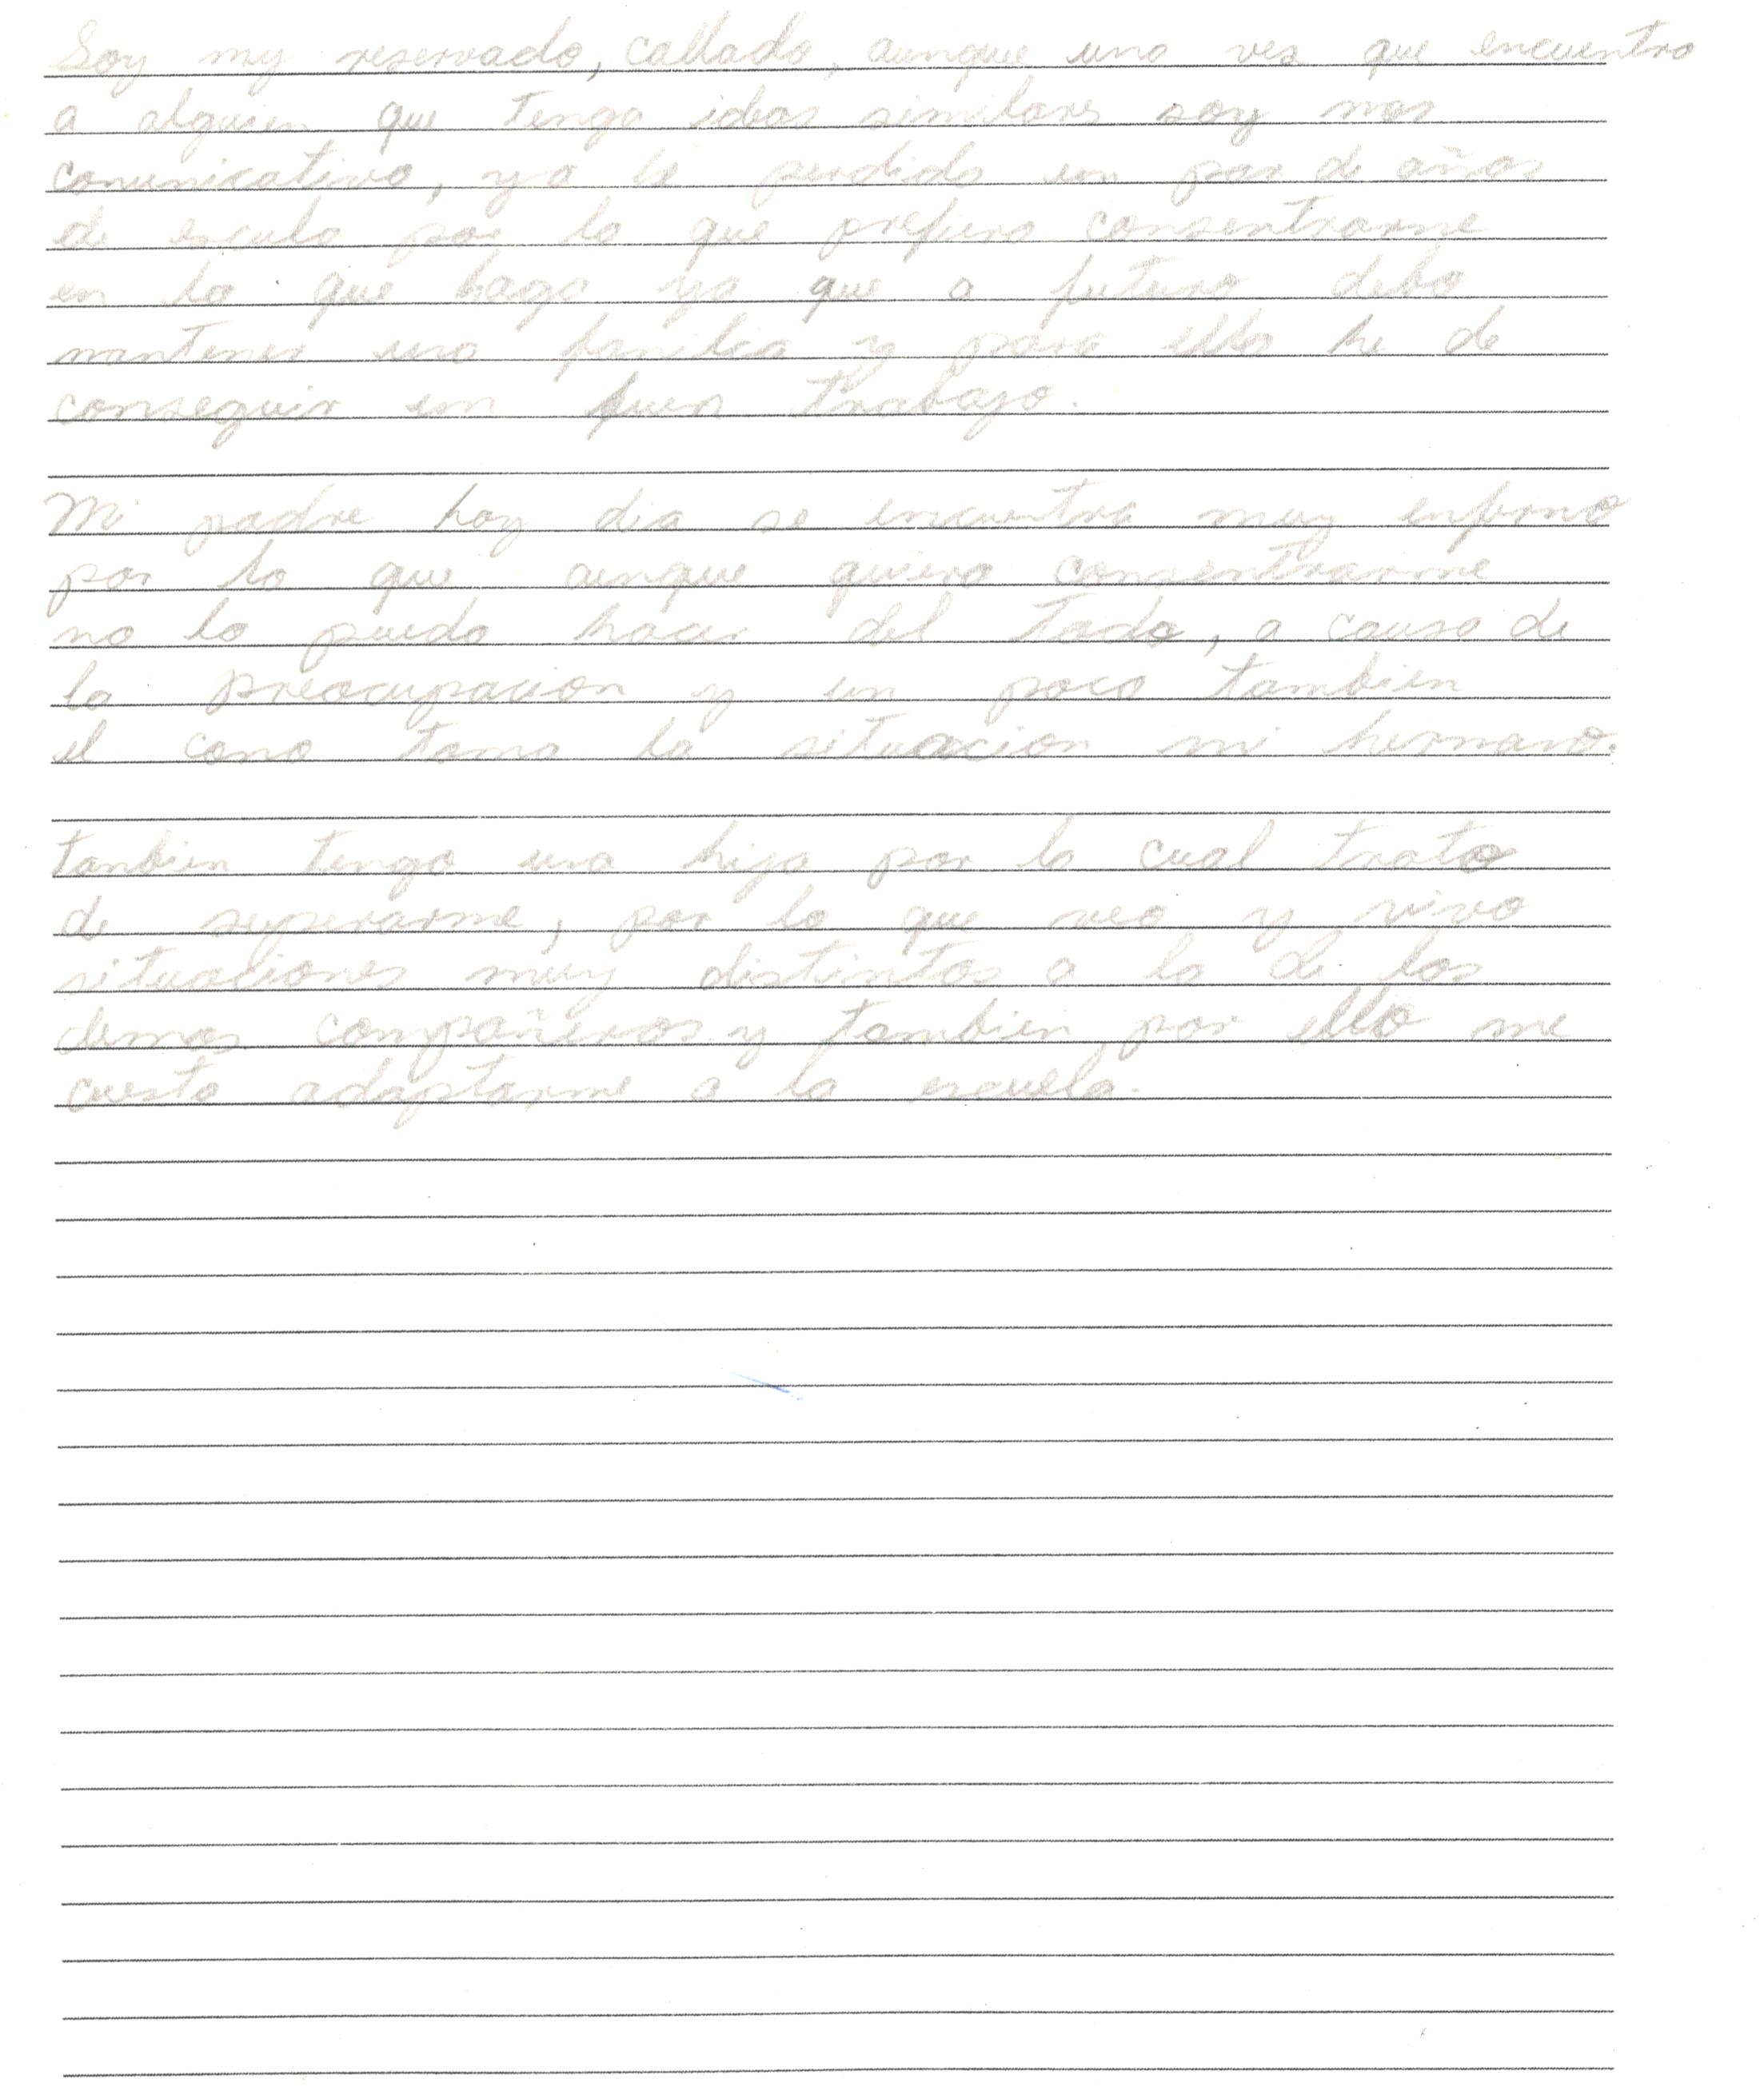 Soy my reservado, callado, aunque una ves que encuentro
a alguien que tenga ideas similares soy mas
comunicativo, ya he perdido un par de años
de escula por lo que prefiero consentrarme
en lo que hago ya que a futuro debo
mantener una familia y para ello he de
conseguir un buen trabajo.
Mi padre hoy dia se encuentra muy enfermo
por lo que aunque quiero consentrarme
no lo puedo hacer del todo, a causa de
la preocupacion y un poco tambien
el como toma la situacion mi hermano.
tambien tengo una hija por la cual trato
de superarme, por lo que veo y vivo
situaciones muy distintas a la de los
demas compañeros y tambien por ello me
cuesta adaptarme a la escuela.